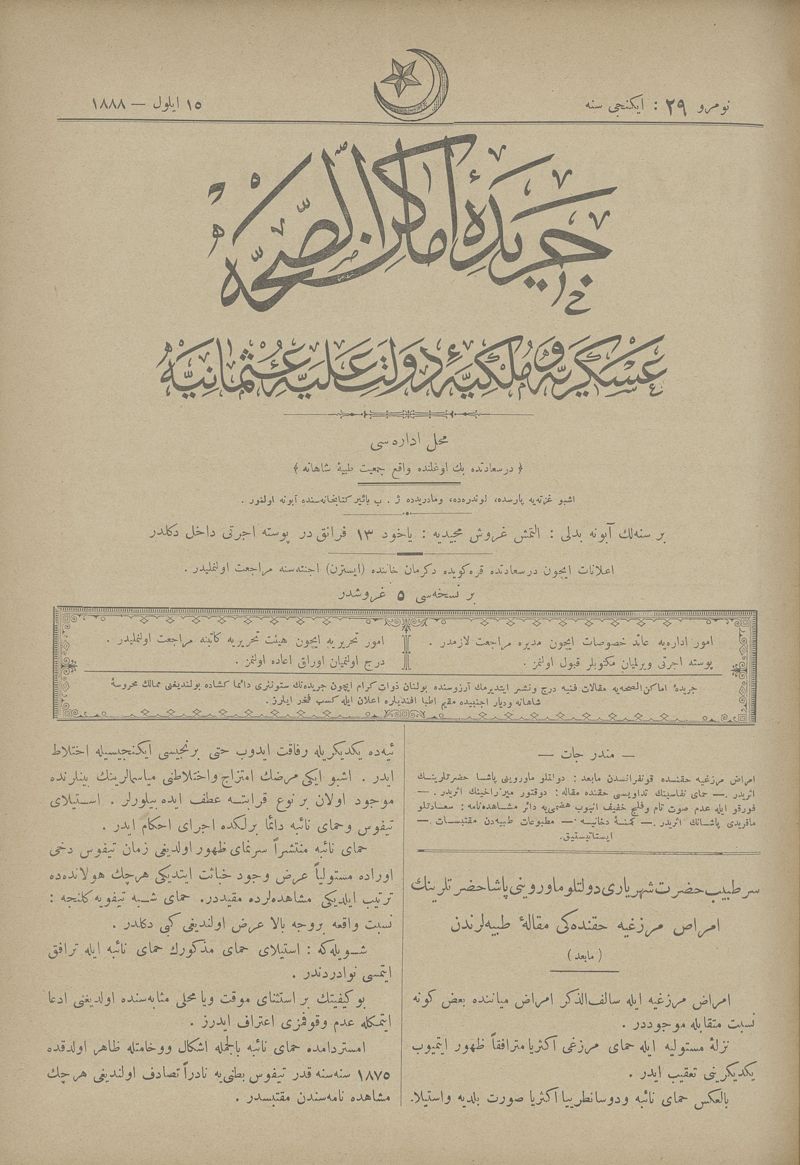 نومرو ٢٩ : ایكنجی سنه
١٥ ایلول — ١٨٨٨
جریدهٔ اماكن الصحه
عسكریه و ملكیهٔ دولت علیهٔ عثمانیه
محل اداره‌سی
﴿ درسعادتده بك اوغلنده واقع جمعیت طبیهٔ شاهانه ﴾
اشبو غزته‌یه پارسده، لوندره‌ده، ومادریدده ژ . ب بائیر كتابخانه‌سنده آبونه اولنور .
بر سنه‌لك آبونه بدلی : التمش غروش مجیدیه : یاخود ١٣ فرانق در پوسته اجرتی داخل دكلدر
اعلانات ایچون درسعادتده قره‌كویده دكرمان خاننده (ایسترن) اجنته‌سنه مراجعت اولنملیدر .
بر نسخه‌سی ٥ غروشدر
امور اداره‌یه عائد خصوصات ایچون مدیره مراجعت لازمدر .
پوسته اجرتی ویرلمیان مكتوبلر قبول اولنمز .
امور تحریریه ایچون هیئت تحریریه كاتبنه مراجعت اولنملیدر .
درج اولنمیان اوراق اعاده اولنمز .
جریدهٔ اماكن الصحه‌یه مقالات فنیه درج ونشر ایتدیرمك آرزوسنده بولنان ذوات كرام ایچون جریده‌نك ستونلری دائما كشاده بولندیغی ممالك محروسهٔ
شاهانه ودیار اجنبیه‌ده مقیم اطبا افندیلره اعلان ایله كسب فخر ایلرز .
— مندرجات —
امراض مرزغیه حقنده قونفرانسدن مابعد : دولتلو ماوروینی پاشا حضرتلرینك
اثریدر . — حمای نفاسینك تداویسی حقنده مقاله : دوقتور میرزاخینك اثریدر . —
فورقو ایله عدم صوت تام وفلج خفیف انبوب هضمی‌یه دائر مشاهده‌نامه : سعادتلو
ماقریدی پاشانك اثریدر . — كمنهٔ دخانیه — مطبوعات طبیه‌دن مقتبسات . —
ایستاتیستیق .
سرطبیب حضرت شهریاری دولتلو ماوروینی پاشا حضرتلرینك
امراض مرزغیه حقنده‌كی مقالهٔ طبیه‌لرندن
( مابعد )
امراض مرزغیه ایله سالف‌الذكر امراض میاننده بعض كونه
نسبت متقابله موجوددر .
نزلهٔ مستولیه ایله حمای مرزغی اكثریا مترافقاً ظهور ایتمیوب
یكدیكرینی تعقیب ایدر .
بالعكس حمای نائبه ودوسانطریا اكثریا صورت بلدیه واستیلا
ئیه‌ده یكدیكریله رفاقت ایدوب حتی برنجیسی ایكنجیسیله اختلاط
ایدر . اشبو ایكی مرضك امتزاج واختلاطنی میاسمالرینك بینلرنده
موجود اولان بر نوع قرابته عطف ایده بیلورلر . استیلای
تیفوس وحمای نائبه دائما برلكده اجرای احكام ایدر .
حمای نائبه منتشراً سرنمای ظهور اولدیغی زمان تیفوس دخی
اوراده مستولیاً عرض وجود خباثت ایتدیكی هرچك هولانده‌ده
ترتیب ایلدیكی مشاهده‌لرده مقیددر . حمای شبه تیفویه كلنجه :
نسبت واقعه بروجه بالا عرض اولندیغی كبی دكلدر .
شویله‌كه : استیلای حمای مذكورك حمای نائبه ایله ترافق
ایتمسی نوادردندر .
بو كیفیتك بر استثنای موقت ویا محلی مثابه‌سنده اولدیغنی ادعا
ایتمكله عدم وقوفمزی اعتراف ایدرز .
امستردامده حمای نائبه بالجمله اشكال ووخامتله ظاهر اولدقده
١٨٧٥ سنه‌سنه قدر تیفوس بطنی‌یه نادراً تصادف اولندیغی هرچك
مشاهده نامه‌سندن مقتبسدر .